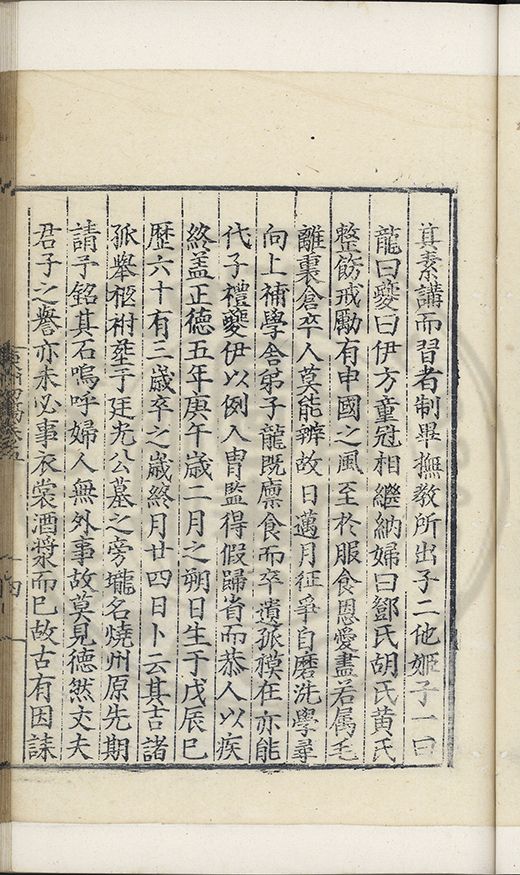 真素講而習者制畢撫教所出子二他姬子一曰
龍曰夔曰伊方童冠相繼納婦曰鄧氏胡氏黃氏
整飭戒勵有申國之風至於服食恩愛盡若属毛
離裏倉卒人莫能辨故日邁月征爭自磨洗學尋
向上補學舍弟子龍既廪食而卒遺孤模在亦能
代子禮夔伊以例入冑監得假歸省而恭人以疾
終盖正德五年庚午歲二月之朔日生于戊辰巳
歷六十有三歲卒之歲終月廿四日卜云其吉諸
孤舉柩祔塟于廷光公墓之旁壠名燒州原先期
請予銘其石嗚呼婦人無外事故莫見德然交夫
君子之譽亦未必事衣裳酒漿而巳故古有因誄